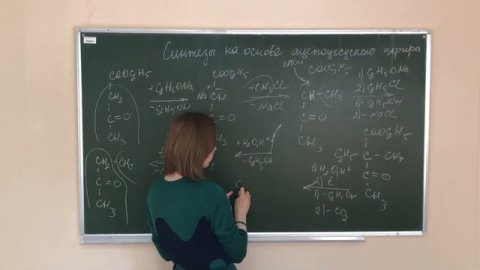 Синтезы на основе ацетоуксусного эфира
COOC₂H₅
CH₂
C=O
CH₃
+C₂H₅ONa
-C₂H₅OH
COOC₂H₅
Na
C=O
+CH₃Cl
-NaCl
COOC₂H₅
CH-CH₃
C=O
CH₃
1) C₂H₅ONa
1) -C₂H₅OH
2) -NaCl
COOC₂H₅
C₂H₅-C-CH₃
C=O
CH₃
+H₂O,H⁺
-C₂H₅OH
1) H₂O,H⁺
2) t
1) -C₂H₅OH
2) -CO₂
CH₂-CH₃
C=O
CH₃